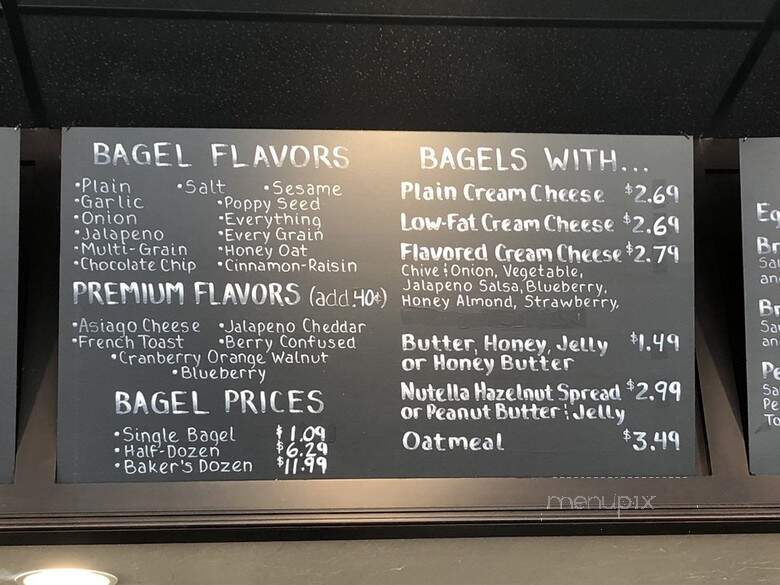 BAGEL FLAVORS
•Plain •Salt •Sesame
•Garlic •Poppy Seed
•Onion •Everything
•Jalapeno •Every Grain
•Multi-Grain •Honey Oat
•Chocolate Chip •Cinnamon-Raisin
PREMIUM FLAVORS (add .40¢)
•Asiago Cheese •Jalapeno Cheddar
•French Toast •Berry Confused
•Cranberry Orange Walnut
•Blueberry
BAGEL PRICES
•Single Bagel $1.09
•Half-Dozen $6.29
•Baker's Dozen $11.99
BAGELS WITH...
Plain Cream Cheese $2.69
Low-Fat Cream Cheese $2.69
Flavored Cream Cheese $2.79
Chive & Onion, Vegetable,
Jalapeno Salsa, Blueberry,
Honey Almond, Strawberry,
Butter, Honey, Jelly $1.49
or Honey Butter
Nutella Hazelnut Spread $2.99
or Peanut Butter & Jelly
Oatmeal $3.49
menupix